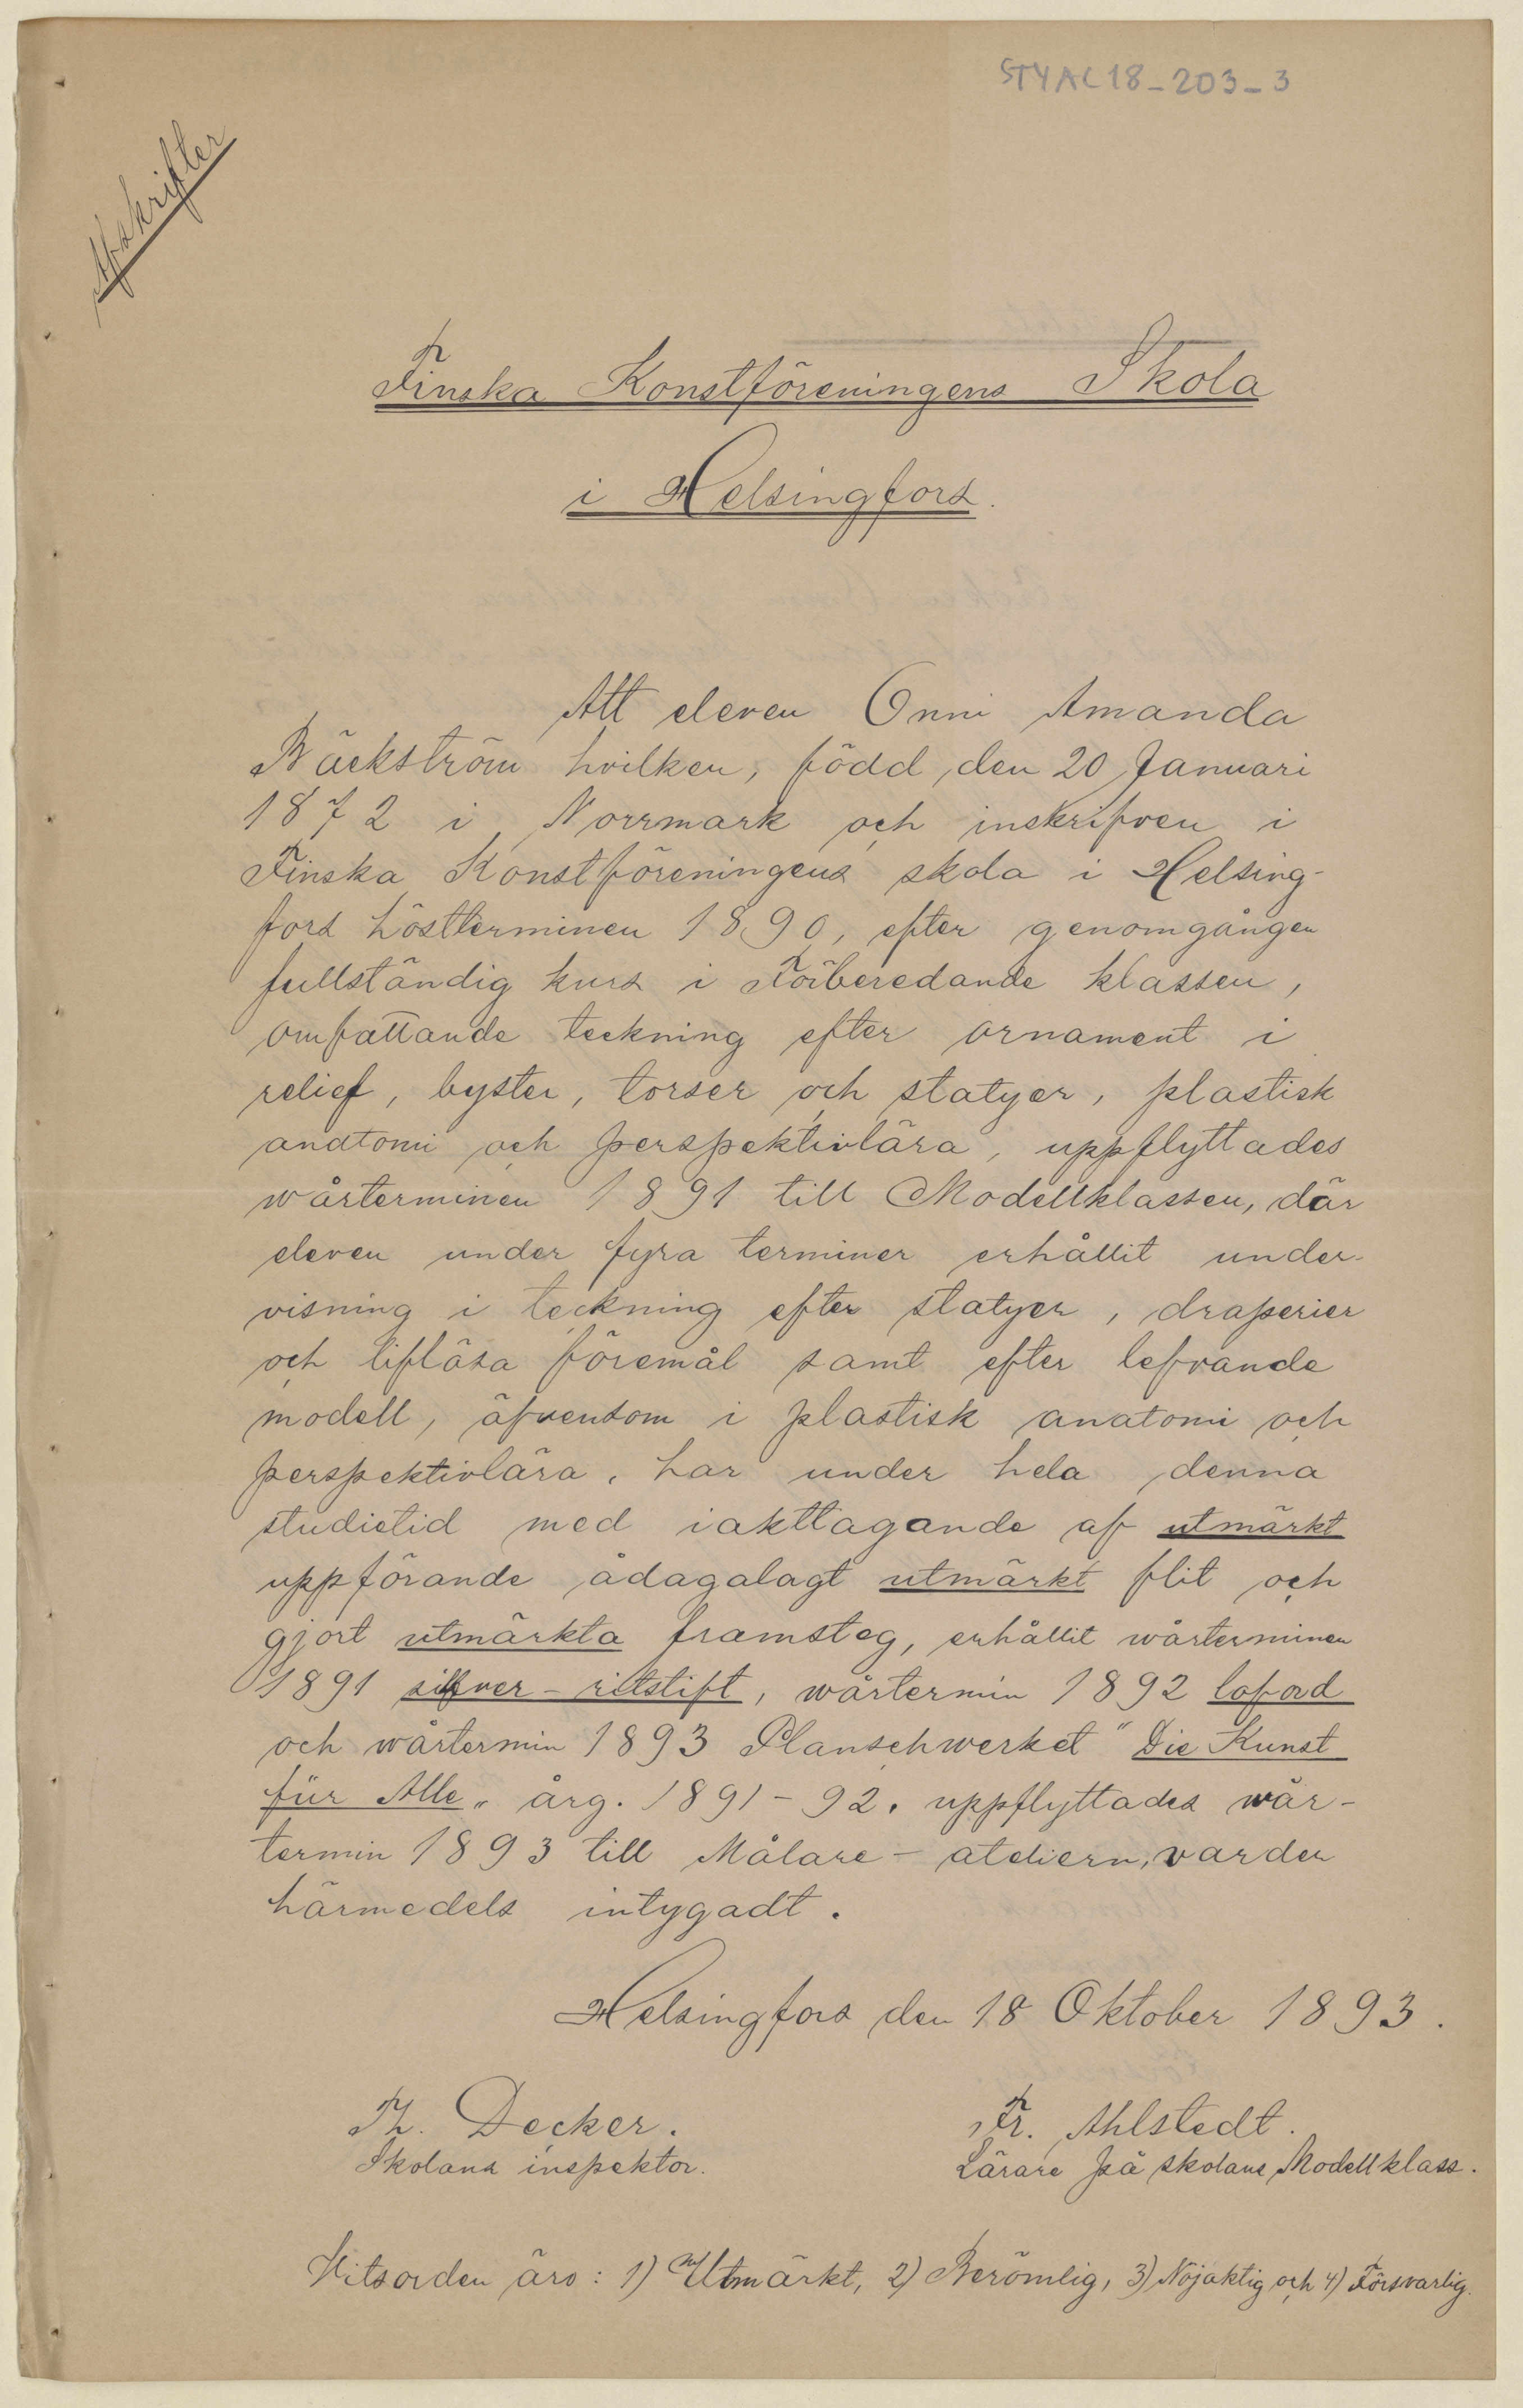 STYAL18-203-3
Afskrifter
Finska Konstföreningens Skola
i Helsingfors.
Att eleven Onni Amanda
Bäckström hvilken, född den 20 Januari
1872 i Norrmark och inskrifven i
Finska Konstföreningens skola i Helsing-
fors höstterminen 1890, efter genomgången
fullständig kurs i Förberedande klassen,
omfattande teckning efter ornament i
relief, byster, torser och statyer, plastisk
anatomi och perspektivlära, uppflyttades
wårterminen 1891 till Modellklassen, där
eleven under fyra terminer erhållit under-
visning i teckning efter statyer, draperier
och liflösa föremål samt efter lefvande
modell, äfvensom i plastisk anatomi och
perspektivlära, har under hela denna
studietid med iakttagande af utmärkt
uppförande ådagalagt utmärkt flit och
gjort utmärkta framsteg, erhållit wårterminen
1891 silfver-ritstift, wårtermin 1892 loford
och wårtermin 1893 Planschwerket "Die Kunst
für Alle„ årg. 1891-92. uppflyttades wår-
termin 1893 till Målare-ateliern, varder
härmedels intygadt.
Helsingfors den 18 Oktober 1893.
Th. Decker.
Skolans inspektor.
Fr. Ahlstedt.
Lärare på skolans Modellklass.
Vitsorden äro: 1) Utmärkt, 2) Berömlig, 3) Nöjaktig och 4) Försvarlig.